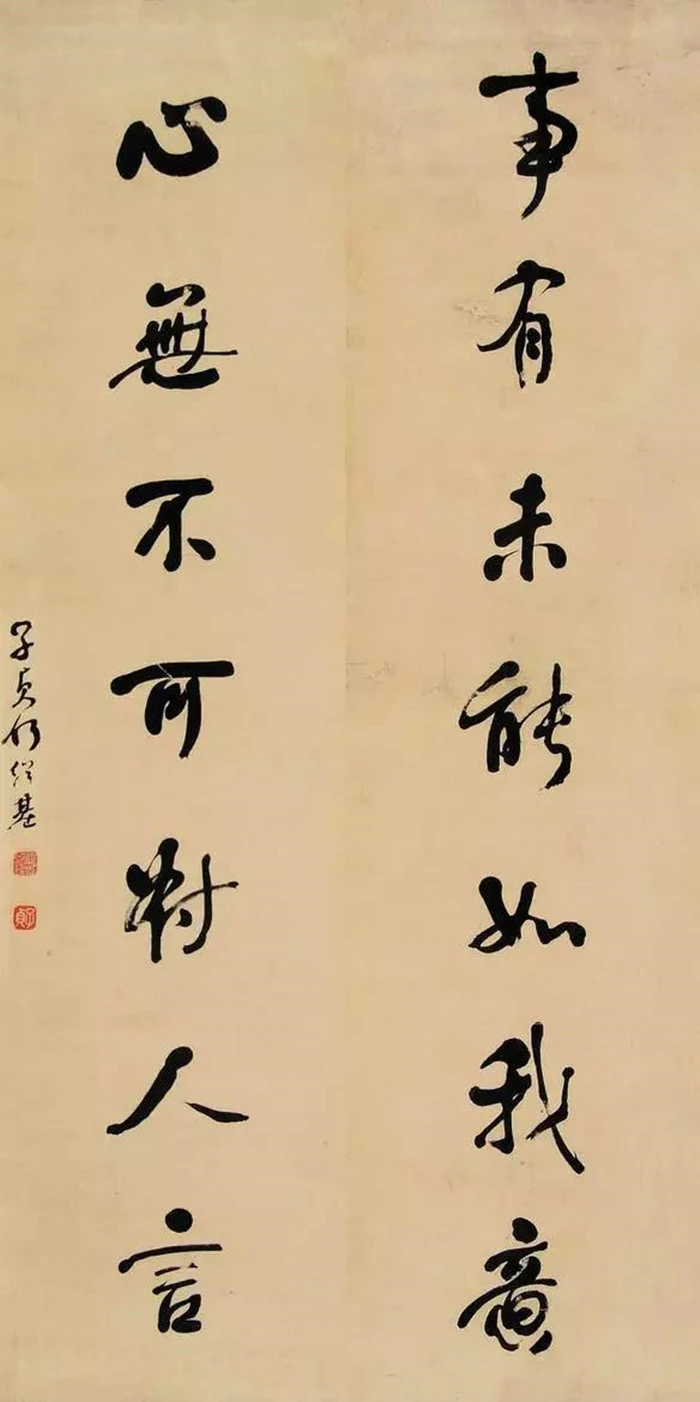 事有未能如我意
心無不可對人言
子貞何紹基
子貞